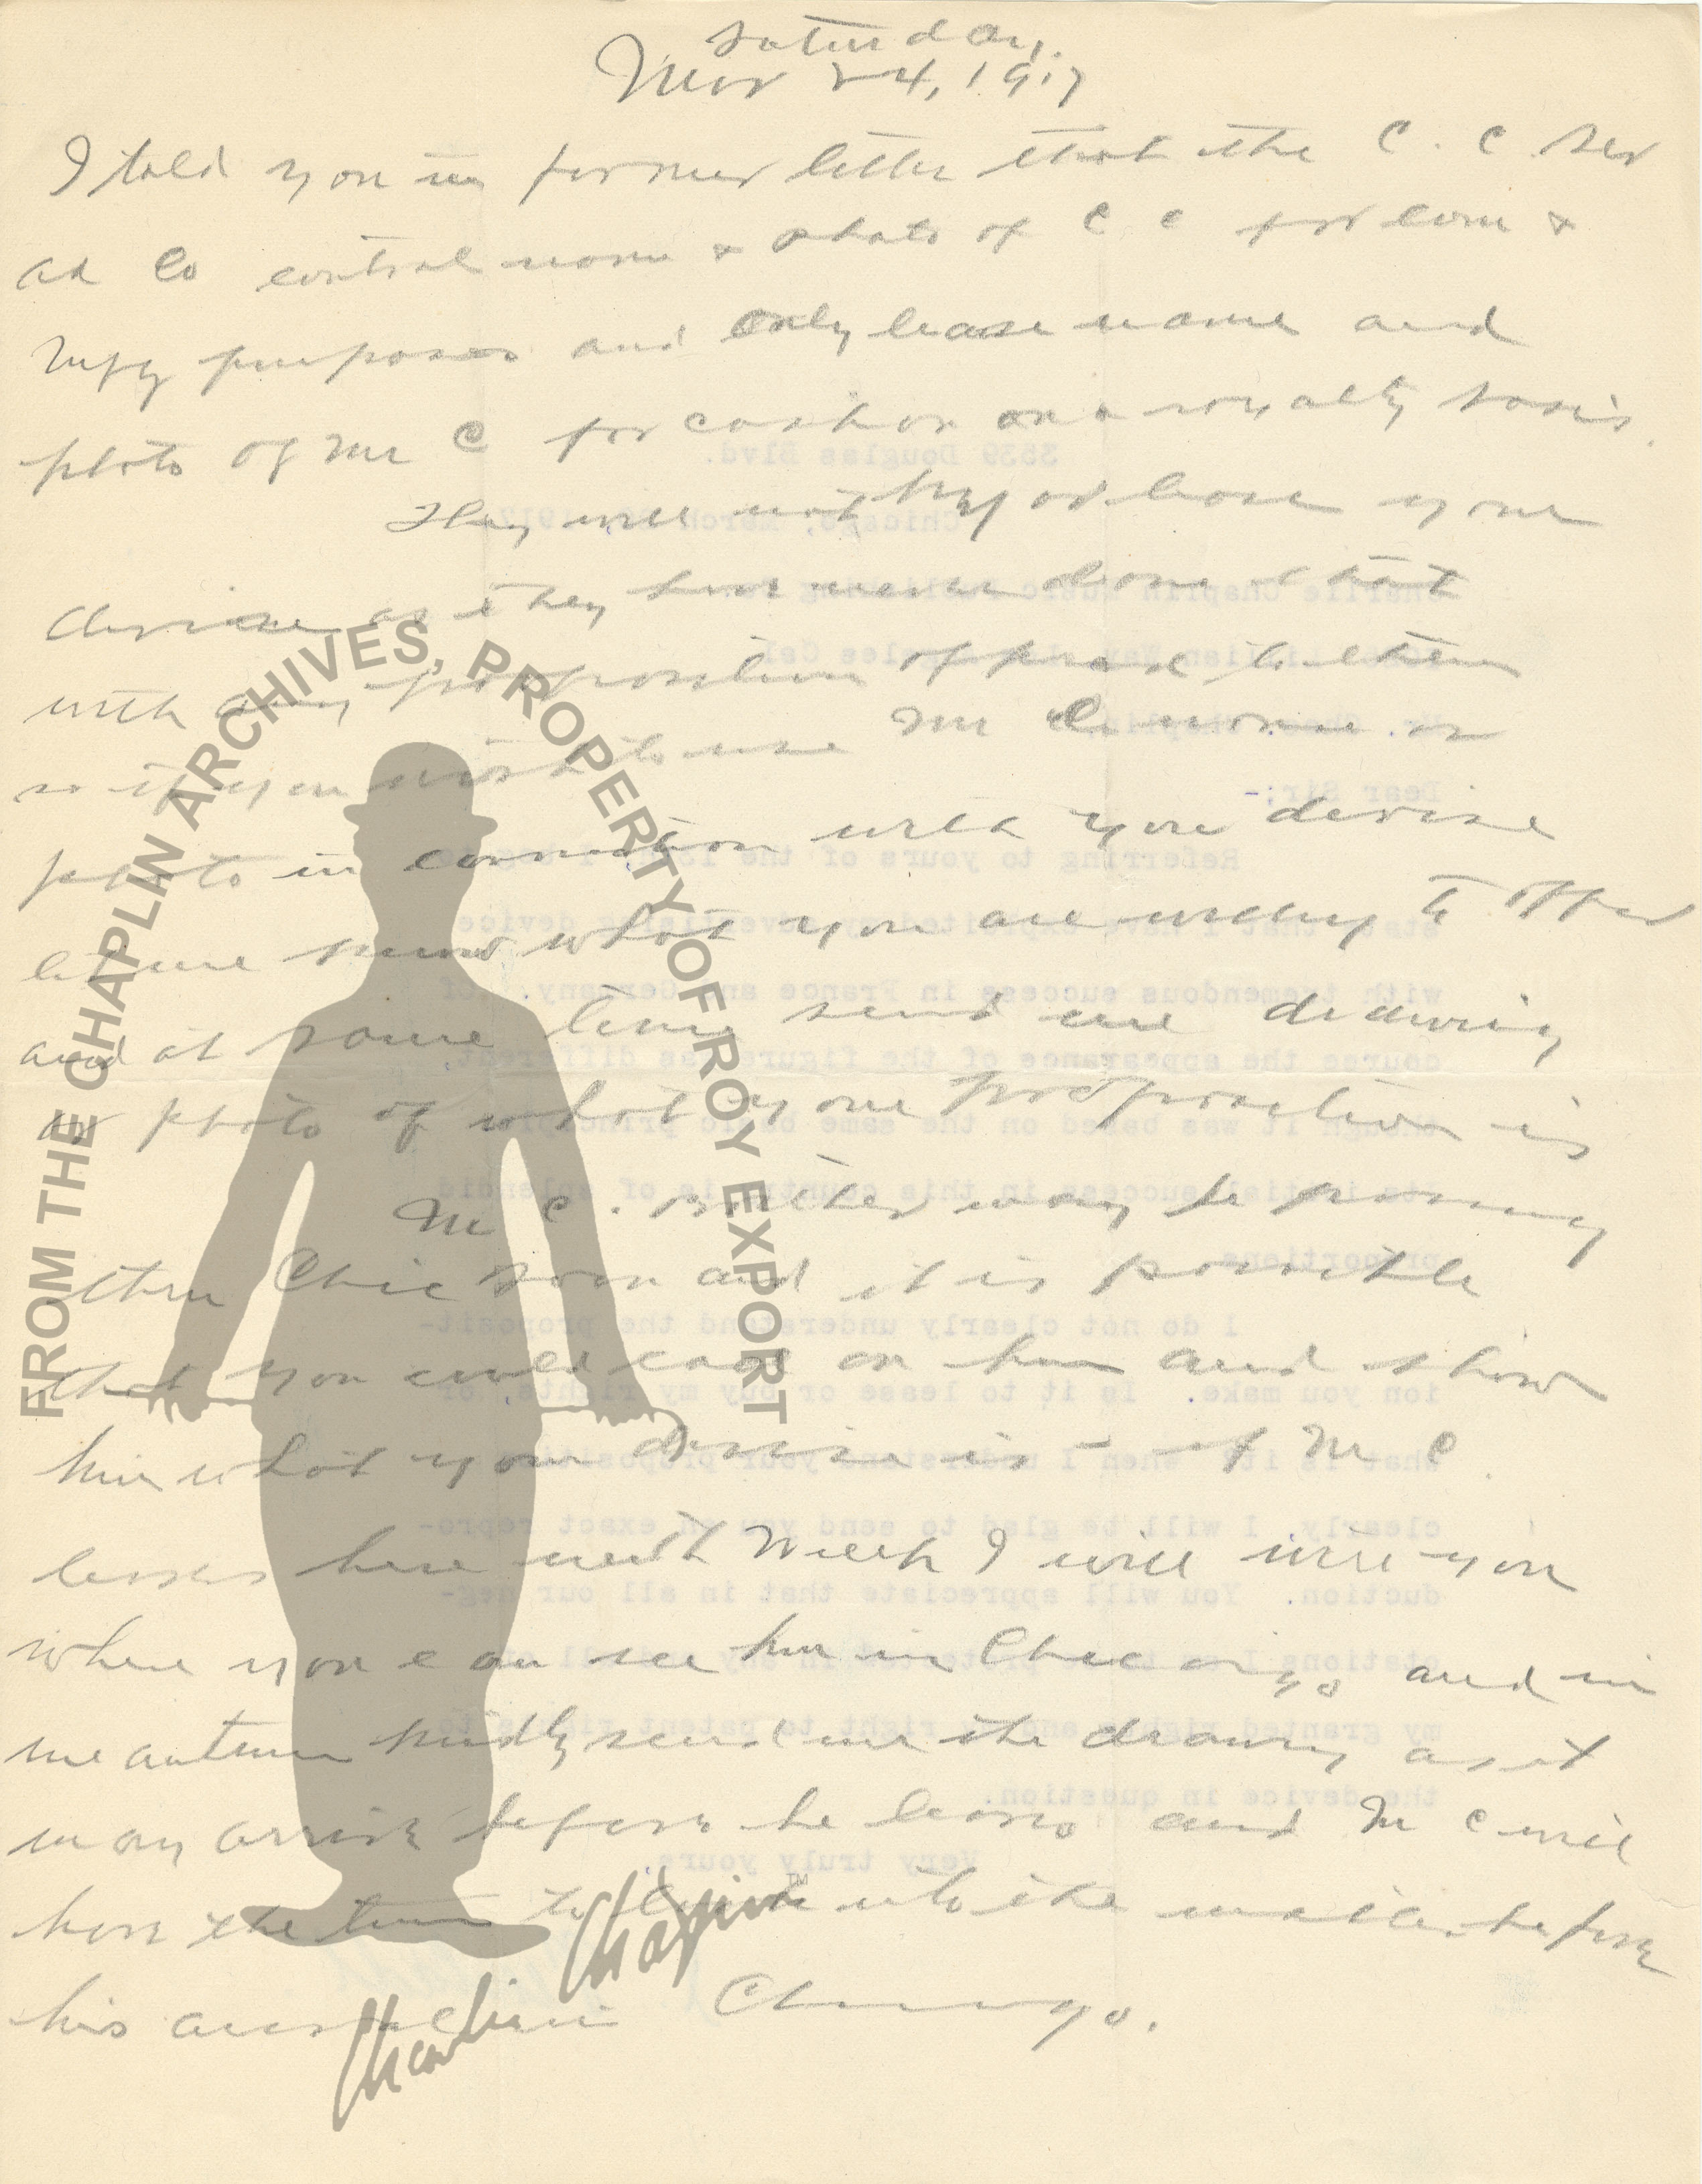 Saturday.
Mar 24, 1917
I told you in former letter that the C. C. Ser
ad Co control name & photo of C C for com &
Mfg purposes and only lease name and
photo of Mr C for cash or on a royalty basis.
They will not buy or lease your
devise as they have never done that
with any proposition offered to them
so if you wish to use Mr C name or
photo in connection with your devise
let me know what you are willing to offer
and at same time send me drawing
or photo of what your proposition is
Mr C. Brother may be passing
thru Chic soon and it is possible
that you could call on him and show
him what your devise is - if Mr C.
leaves here next week I will wire you
where you can see him in Chicago and in
meantime kindly send me the drawing as it
may arrive before he leaves and Mr C will
have the time to look into the matter before
his arrival in Chicago.
FROM THE CHAPLIN ARCHIVES, PROPERTY OF ROY EXPORT
Charlie Chaplin™
3539 Douglas Blvd.
Chicago, March 1917
Charlie Chaplin Music Publishing Co.
Los Angeles Cal
Dear Sir;-
Referring to yours of the
state that I have exploited my advertising device
with tremendous success in France and Germany. Of
course the appearance of the figure was different,
though it was based on the same basic principle
Its initial success in this country is of splendid
proportions
I do not clearly understand the proposit-
ion you make. Is it to lease or buy my rights, or
what is it? When I understand your proposition
clearly, I will be glad to send you an exact repro-
duction. You will appreciate that in all our neg-
otiations I protected in any and all
my granted rights and right to patent rights to
the device in question.
Very truly yours,